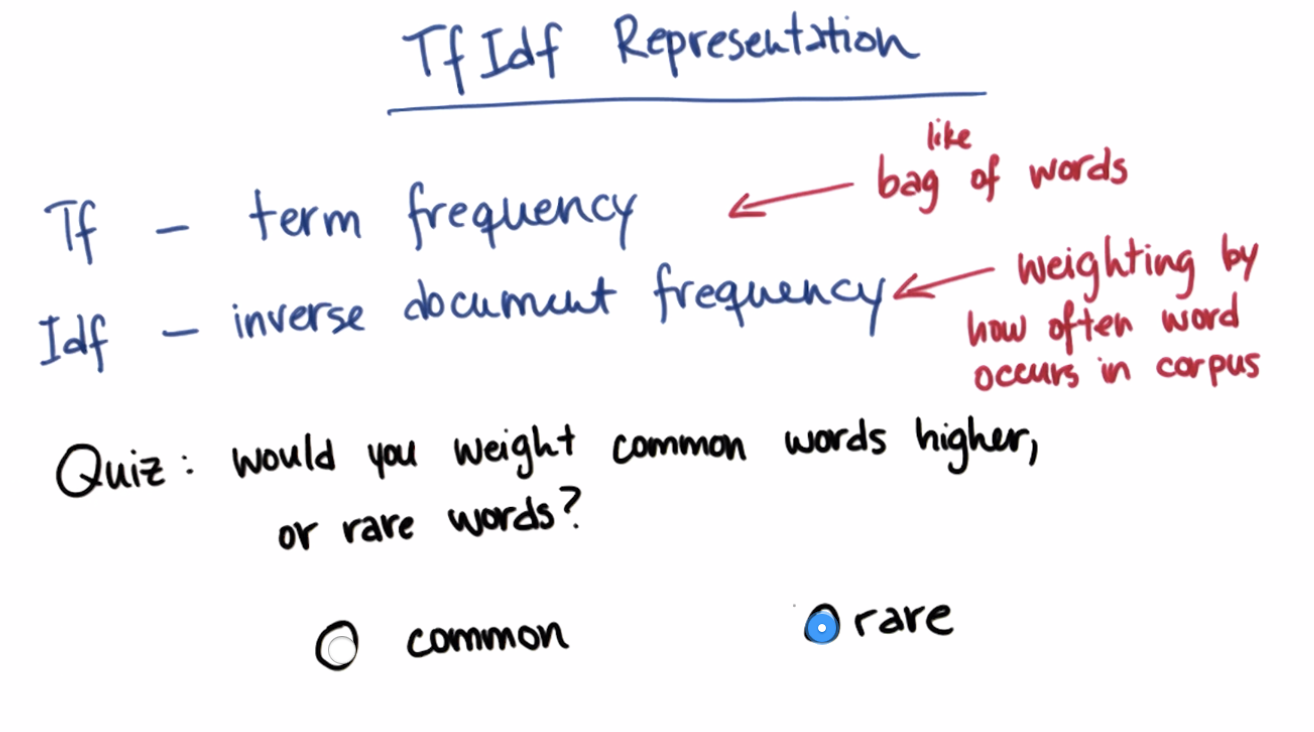 Tf Idf Representation
like
bag of words
Tf - term frequency
Idf - inverse document frequency
weighting by
how often word
occurs in corpus
Quiz: would you weight common words higher,
or rare words?
common
rare